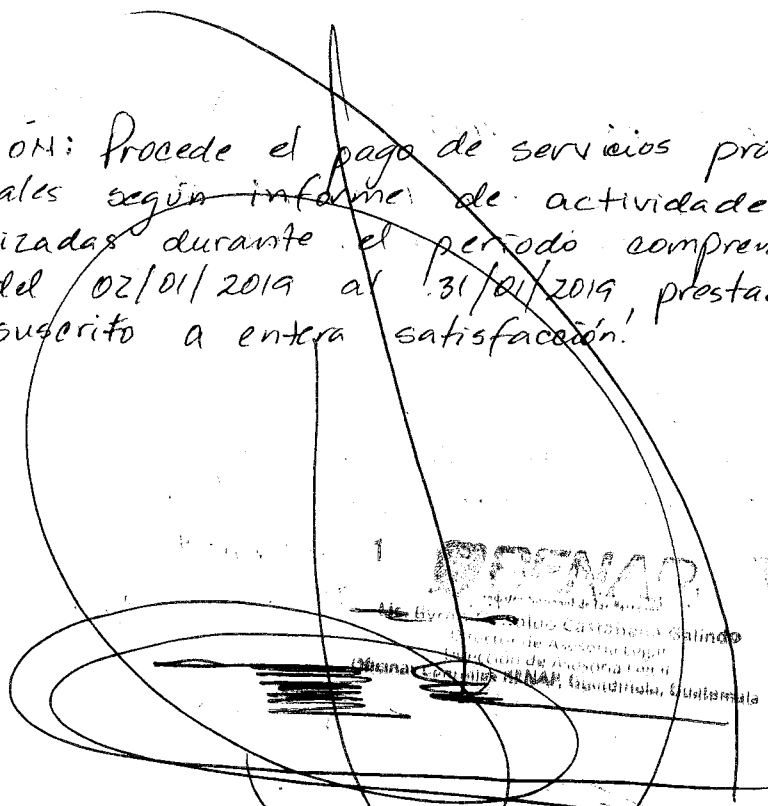 ÓN: Procede el pago de servicios pro
ales según informe de actividade
izadas durante el período compren
del 02/01/2019 al 31/01/2019, presta
suscrito a entera satisfacción.
1
RENAP
Castañeda Galindo
Director de Asesoría Legal
Dirección de Asesoría Legal
Oficinas Centrales RENAP, Guatemala, Guatemala